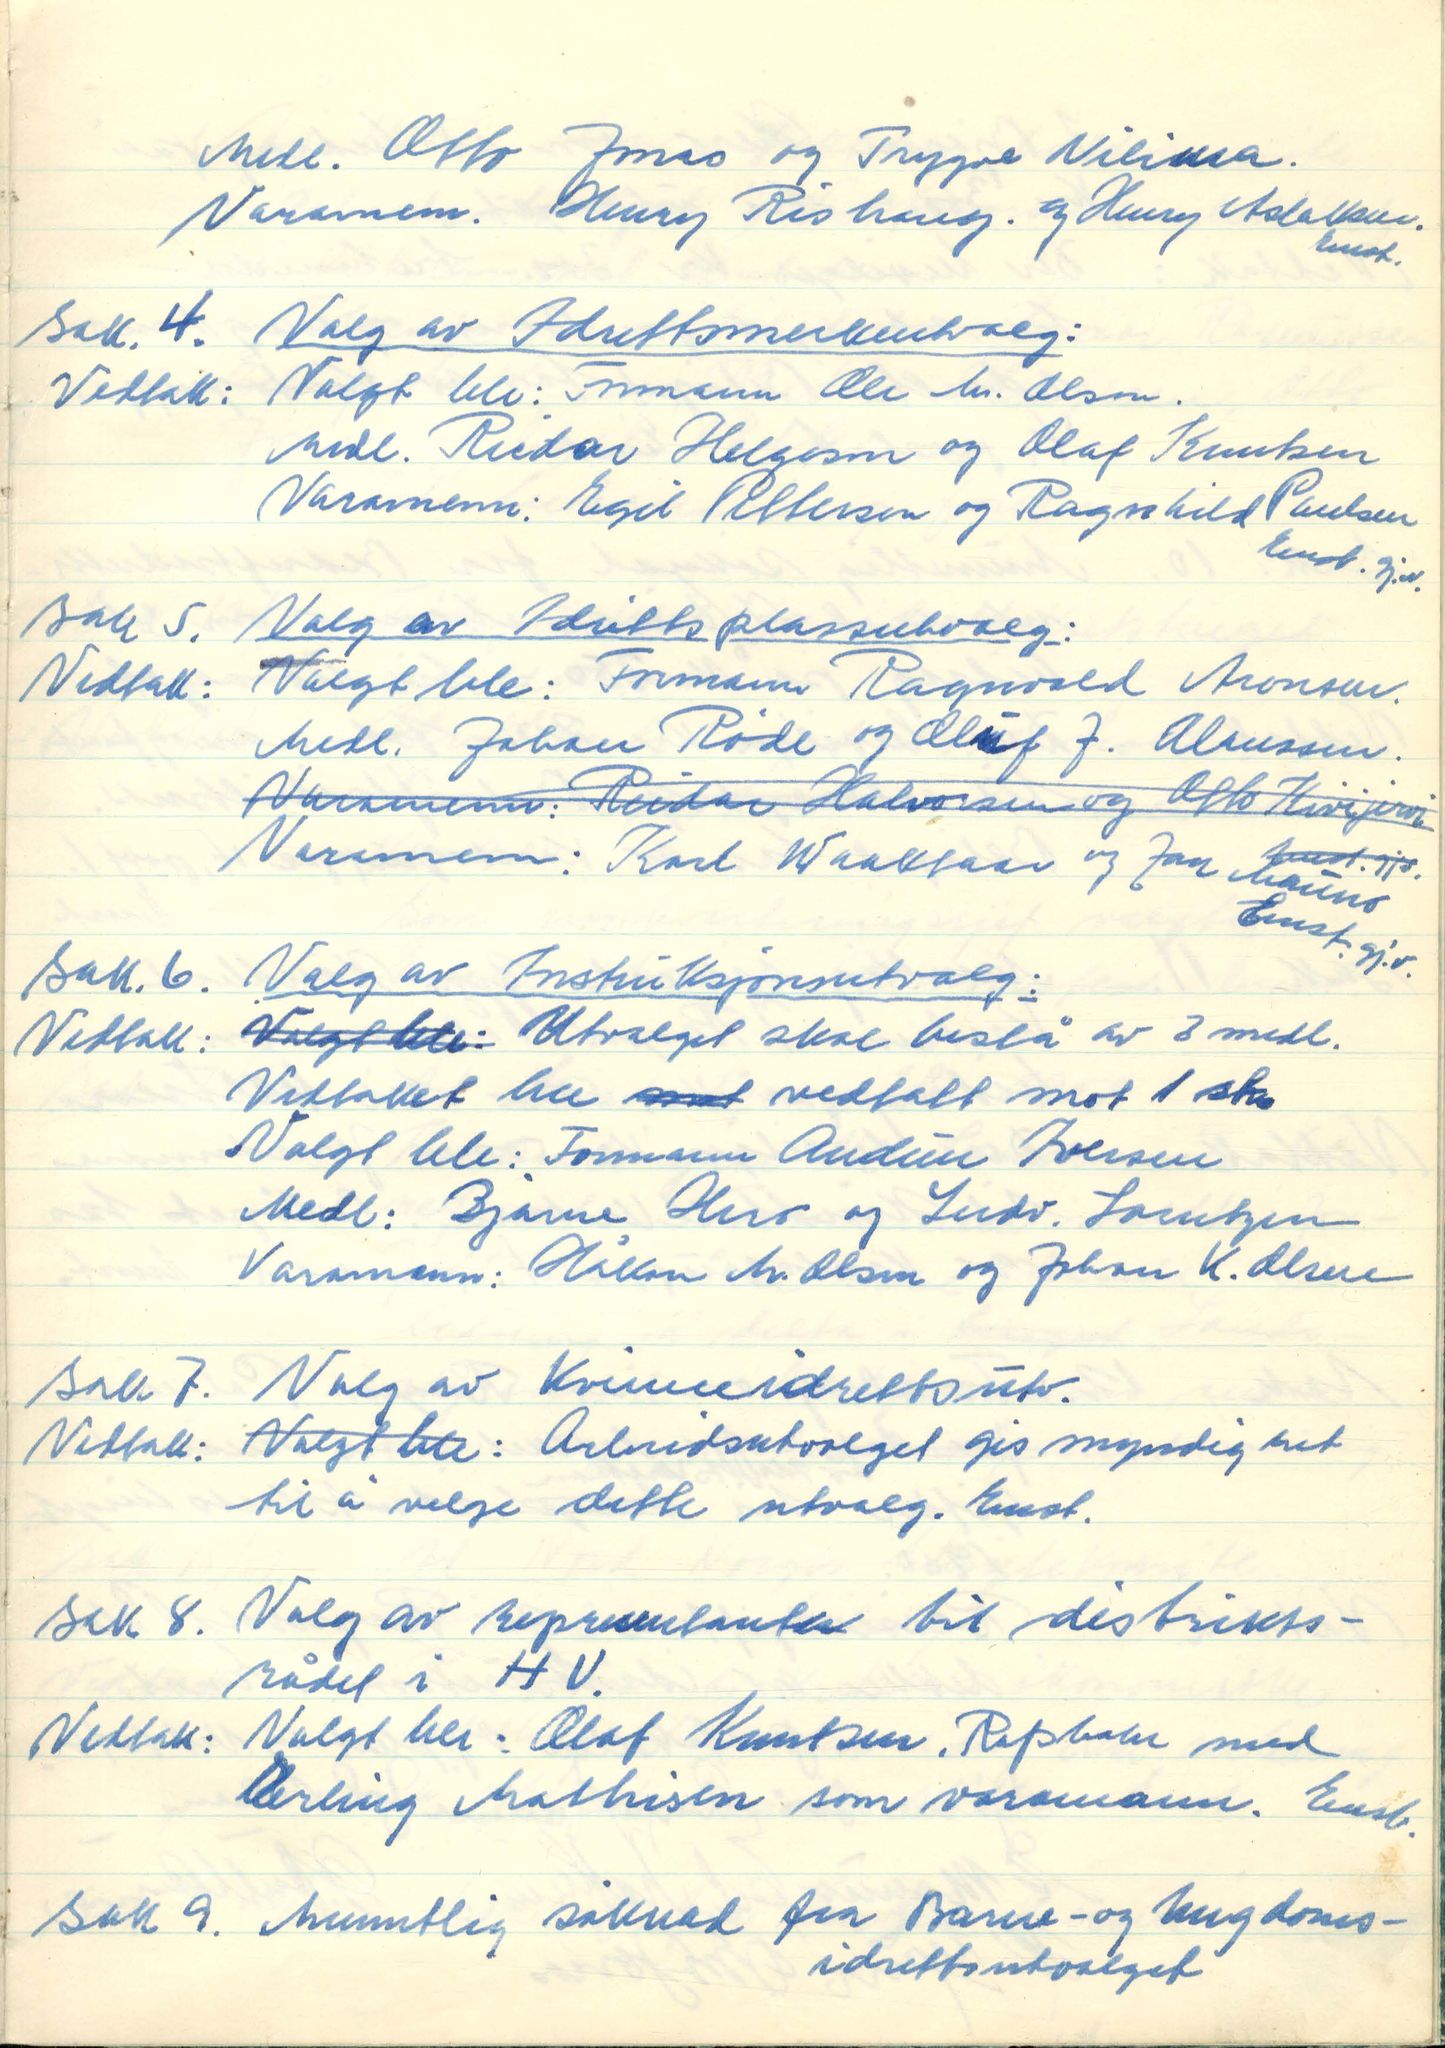 Medl. Otto Jonas og Trygve Niliksa.
Varamenn. Henry Rishaug. og Henry Aslaksen.
Enst.
Sak. 4. Valg av Idrettsmerkeutvalg:
Vedtak: Valgt ble: Formann Ole M. Olsen.
Medl. Reidar Helgesen og Olaf Knutsen
Varamenn: Egil Pettersen og Ragnhild Paulsen
Enst. gj.v.
Sak 5. Valg av Idrettsplassutvalg:
Vedtak: Valgt ble: Formann Ragnvald Aronsen.
Medl. Johan Røde og Oluf J. Claussen.
Varamenn: Reidar Halvorsen og Otto Kivijervi
Enst. gj.v.
Varamenn: Karl Waaktaar og Jan Mauno
Enst. gj.v.
Sak. 6. Valg av Instruksjonsutvalg:
Vedtak: Valgt ble: Utvalget skal bestå av 3 medl.
Vedtaket ble mot vedtatt mot 1 st.
Valgt ble: Formann Audun Iversen
Medl: Bjarne Hiro og Ludv. Lorentzen
Varamenn: Håkon M. Olsen og Johan K. Olsen
Sak 7. Valg av Kvinneidrettsutv.
Vedtak: Valgt ble: Arbeidsutvalget gis myndighet
til å velge dette utvalg. Enst.
Sak 8. Valg av representanter til distrikts-
rådet i H V.
Vedtak: Valgt ble: Olaf Knutsen, Rafsbotn med
Erling Mathisen som varamann. Enst.
Sak 9. Muntlig søknad fra Barne- og Ungdoms-
idrettsutvalget